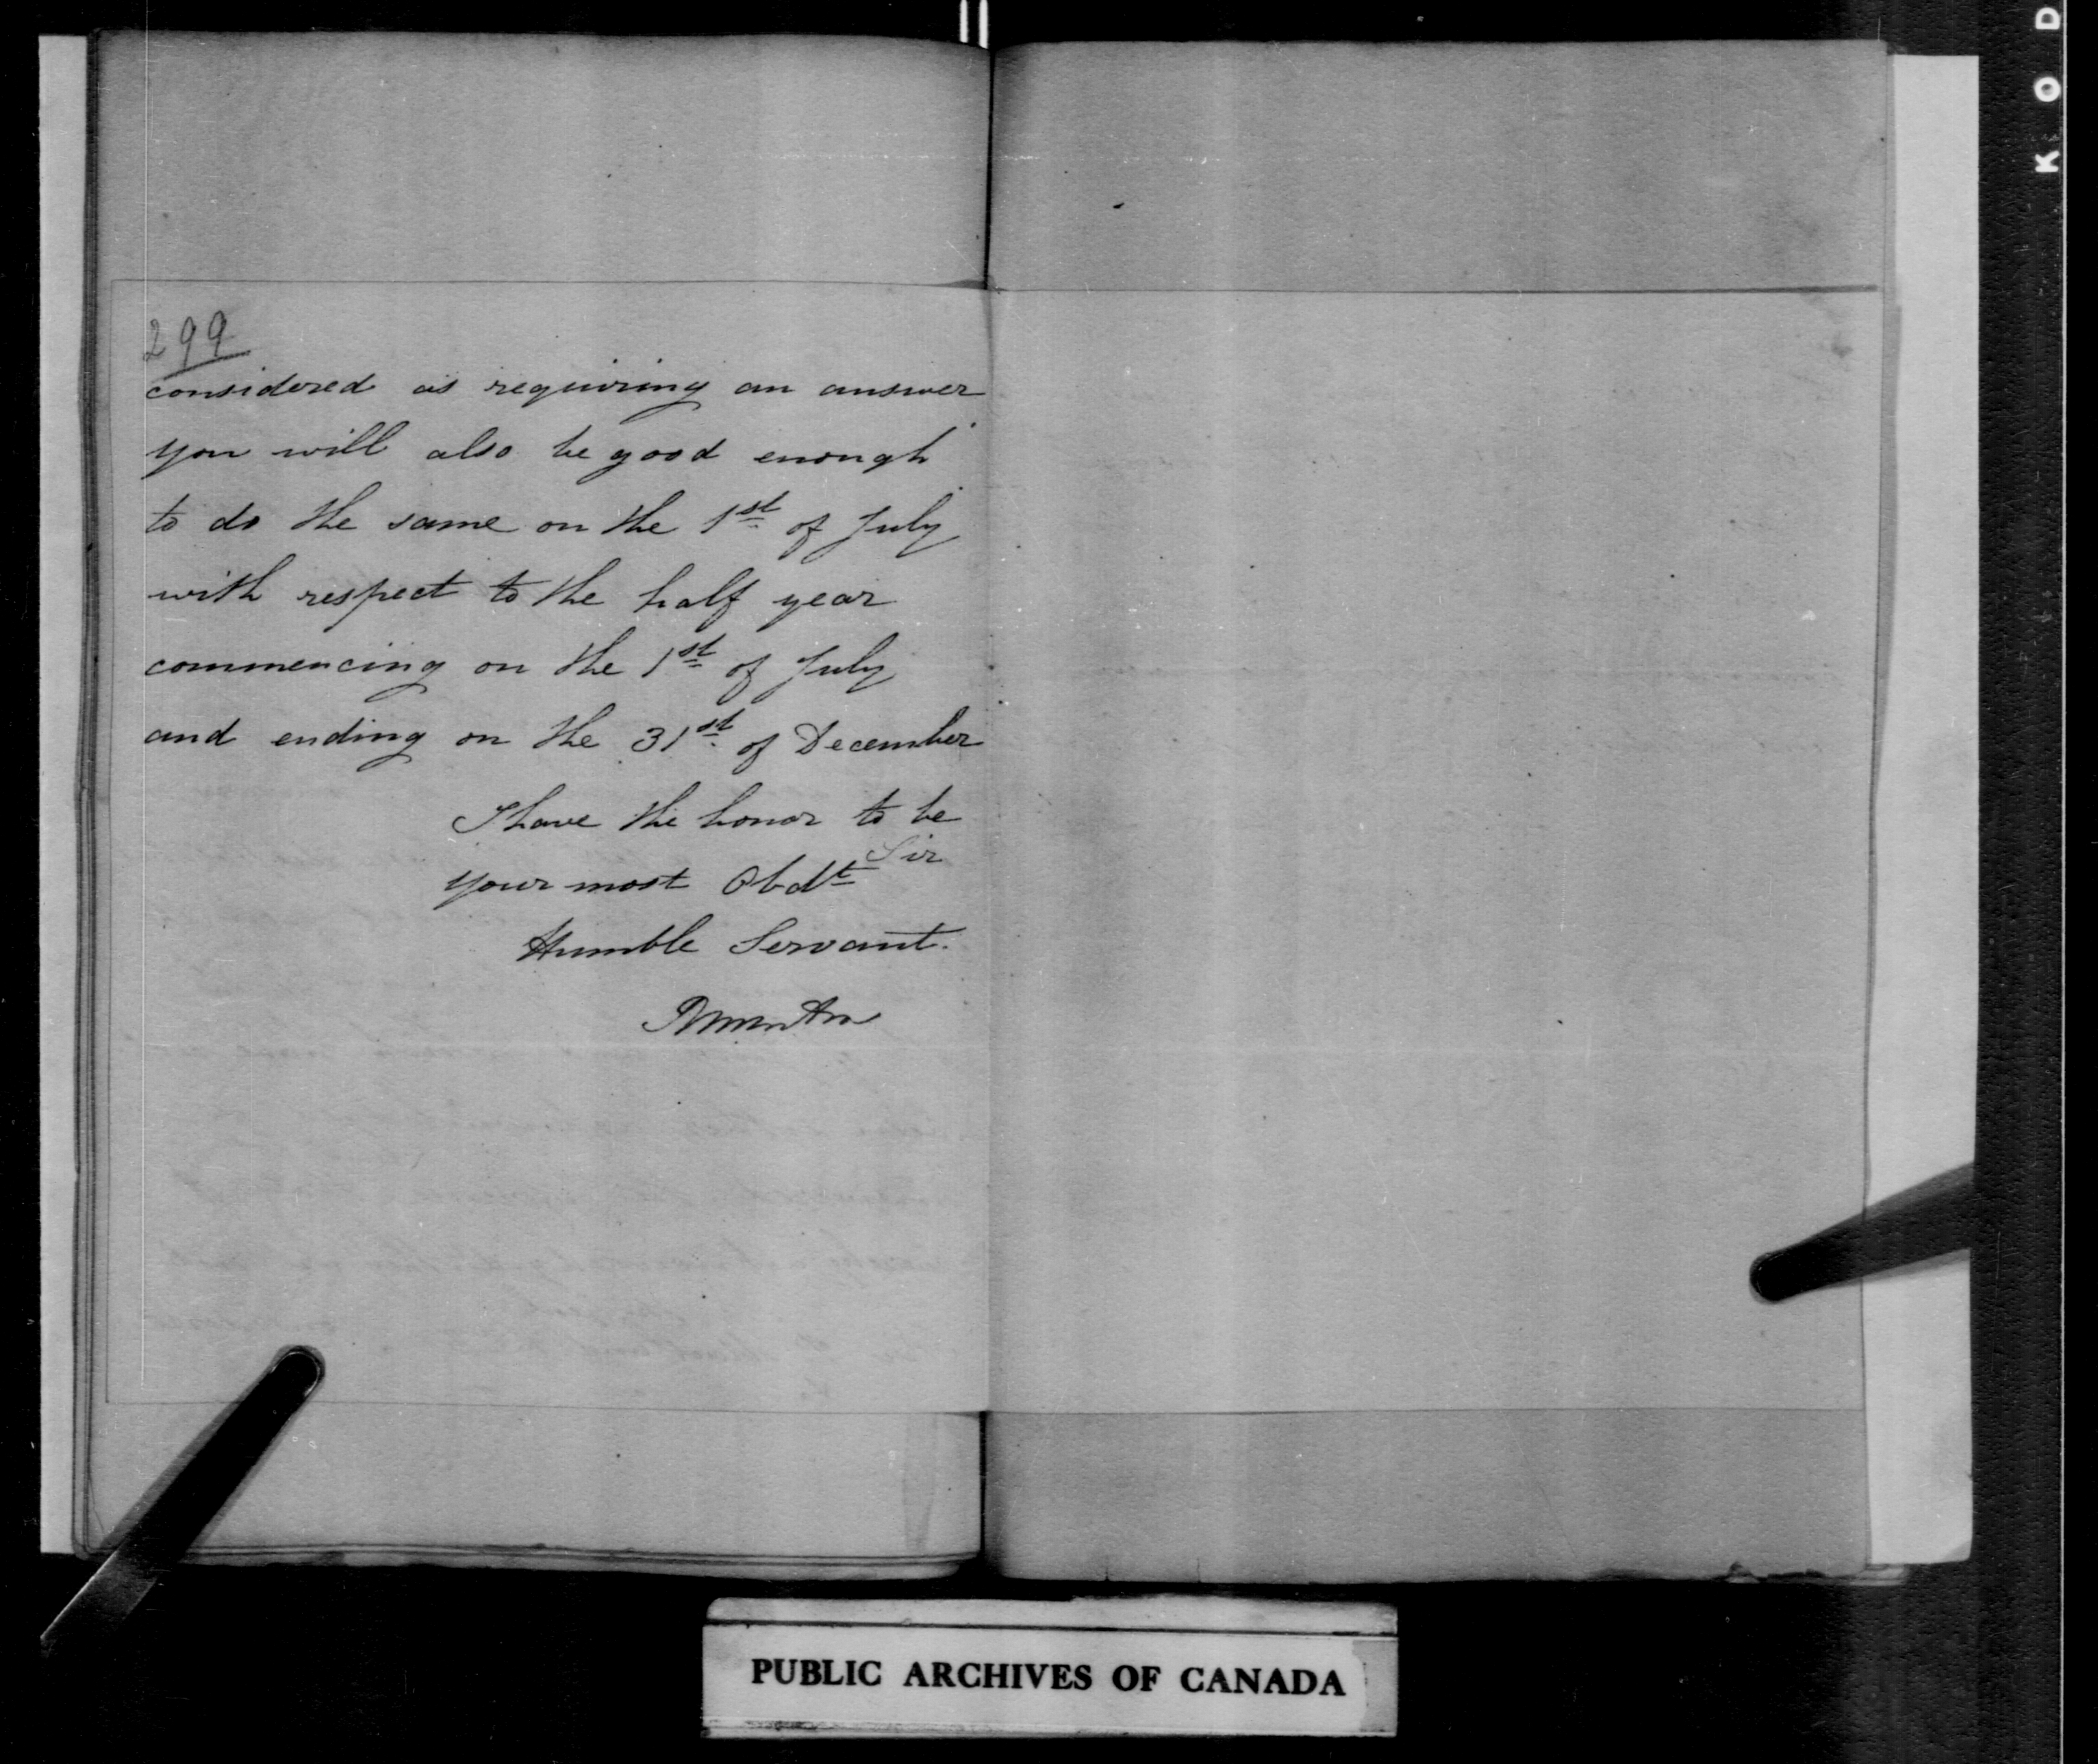 299
considered as requiring an answer
you will also be good enough
to do the same on the 1st of July
with respect to the half year
commencing on the 1st of July
and ending on the 31st of December
I have the honor to be
Sir
your most Obdt
Humble Servant.
PUBLIC ARCHIVES OF CANADA
K O D